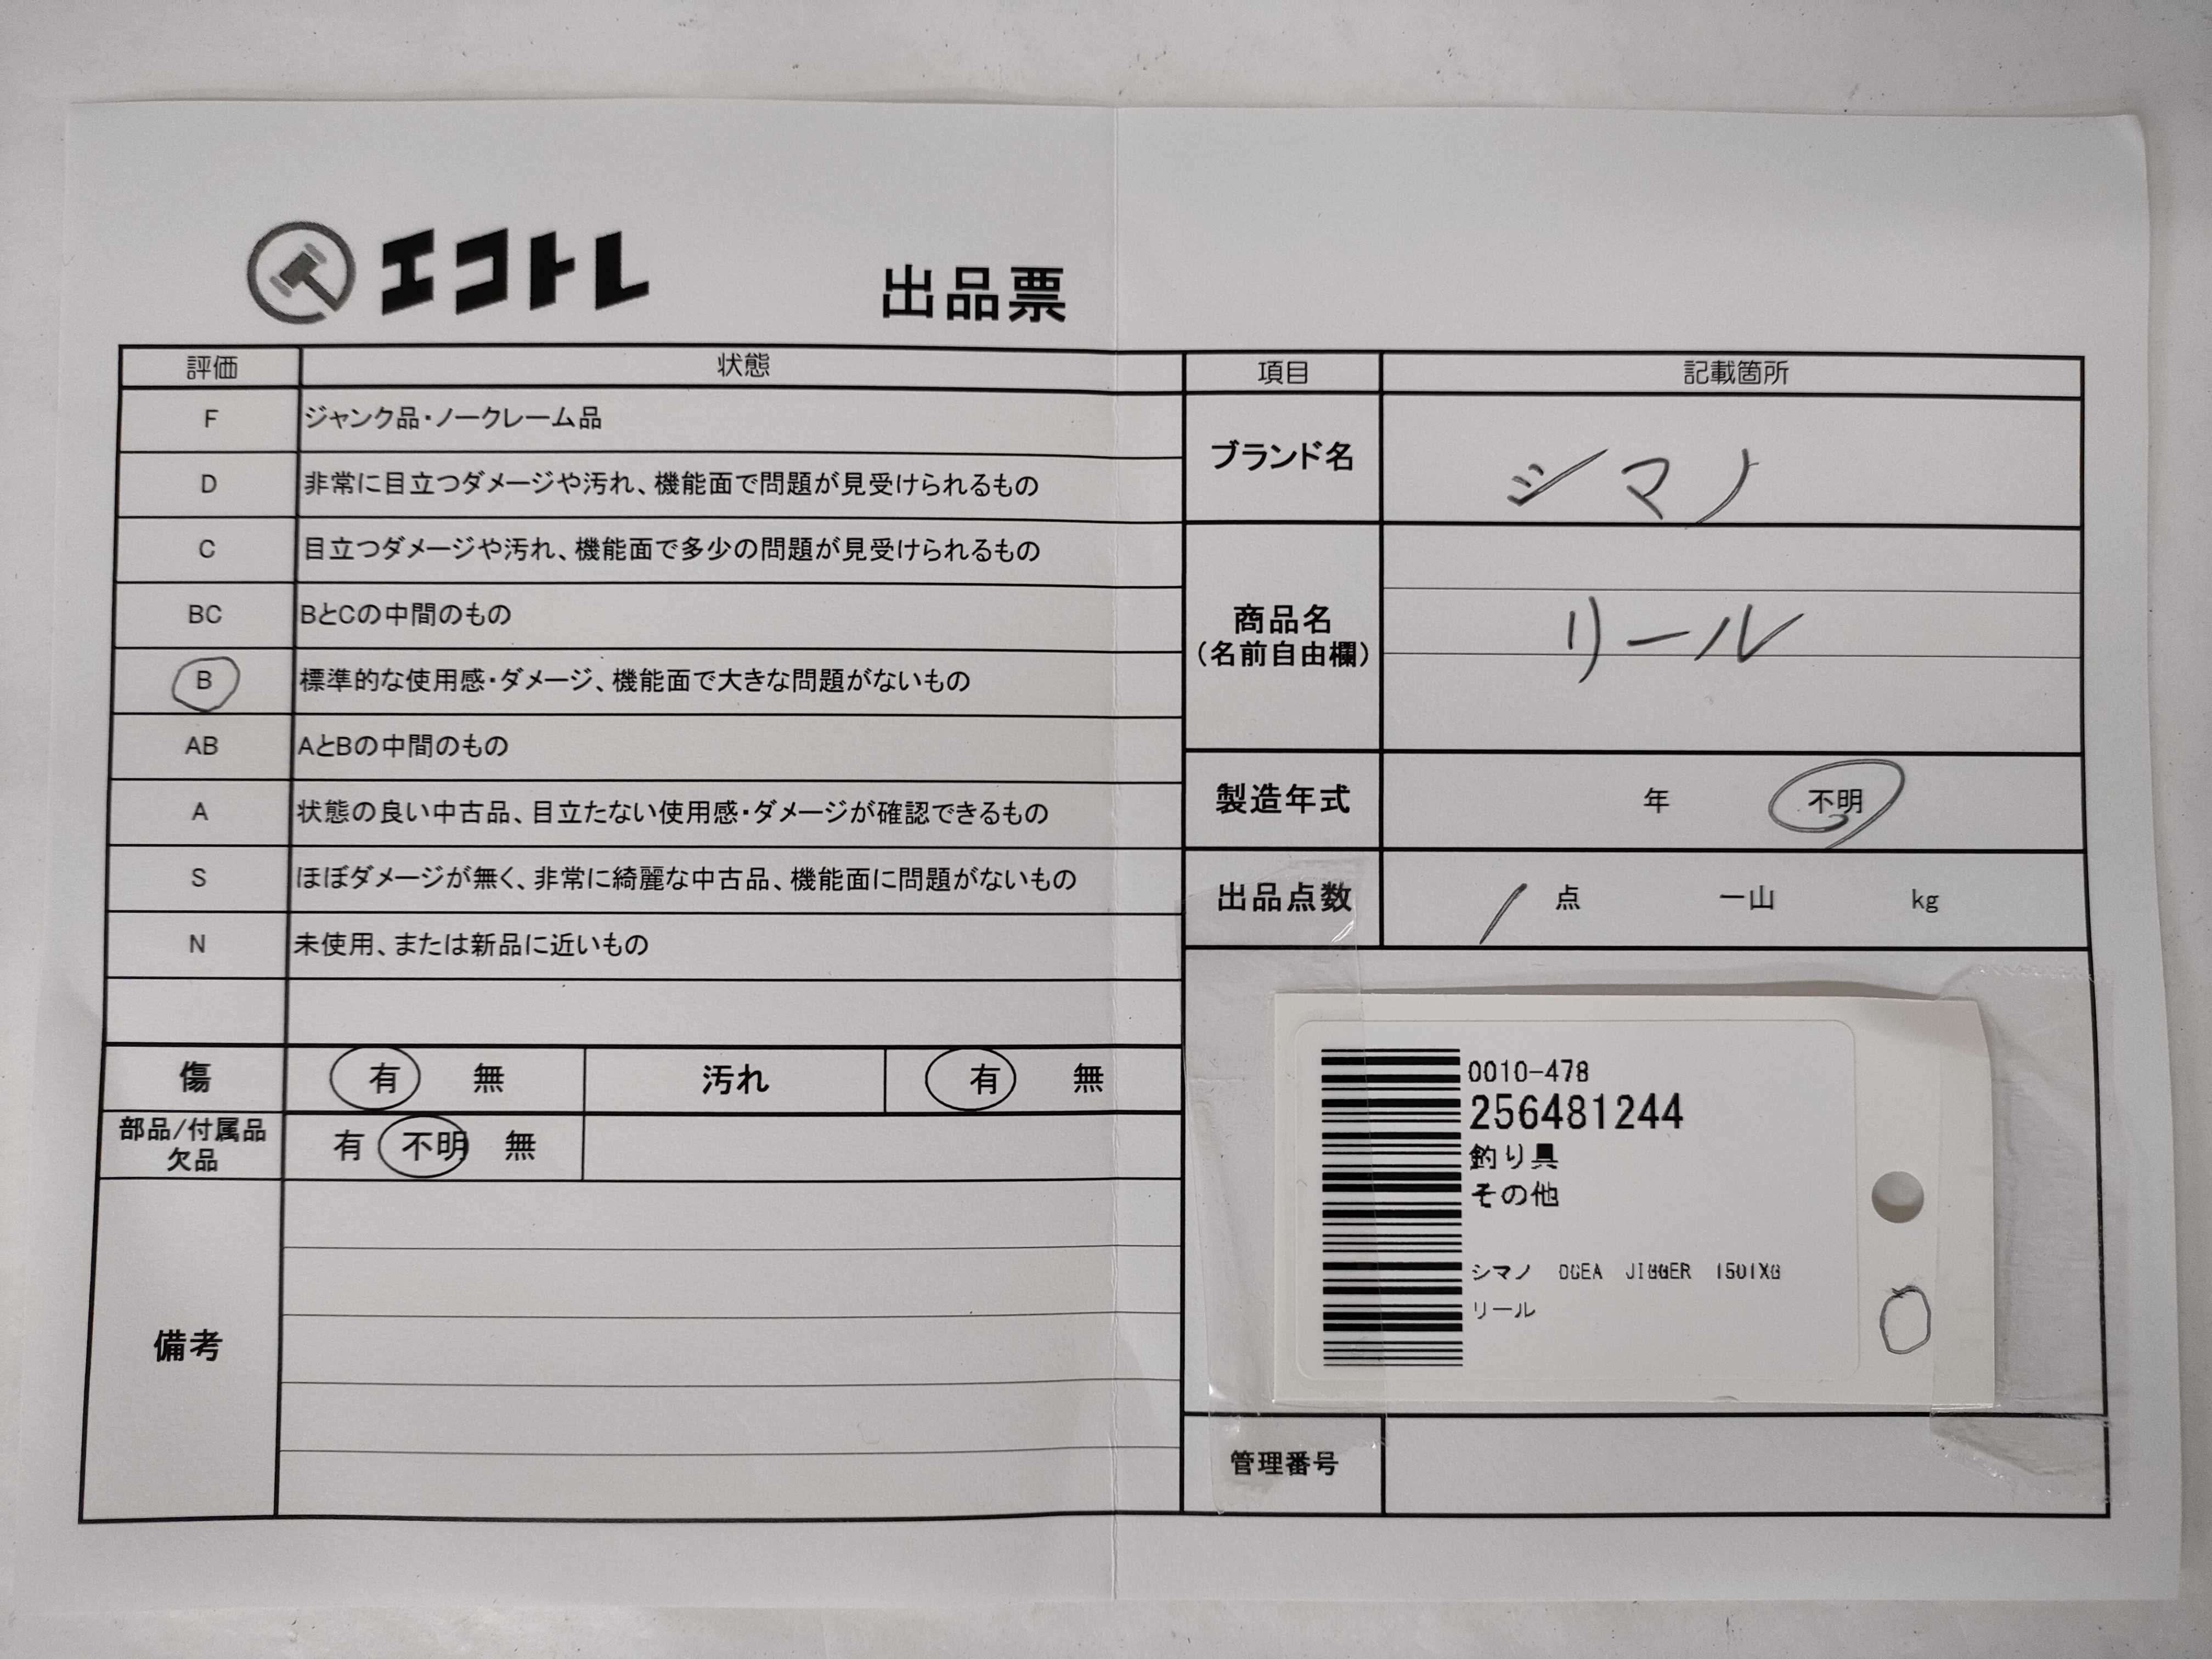 エコトレ 出品票
評価 状態
F ジャンク品・ノークレーム品
D 非常に目立つダメージや汚れ、機能面で問題が見受けられるもの
C 目立つダメージや汚れ、機能面で多少の問題が見受けられるもの
BC BとCの中間のもの
B 標準的な使用感・ダメージ、機能面で大きな問題がないもの
AB AとBの中間のもの
A 状態の良い中古品、目立たない使用感・ダメージが確認できるもの
S ほぼダメージが無く、非常に綺麗な中古品、機能面に問題がないもの
N 未使用、または新品に近いもの
傷 有 無 汚れ 有 無
部品/付属品
欠品
有 不明 無
備考
項目 記載箇所
ブランド名 シマノ
商品名
(名前自由欄)
リール
製造年式 年 不明
出品点数 1 点 一山 kg
0010-478
256481244
釣り具
その他
シマノ OCEA JIGGER 1501XG
リール
管理番号